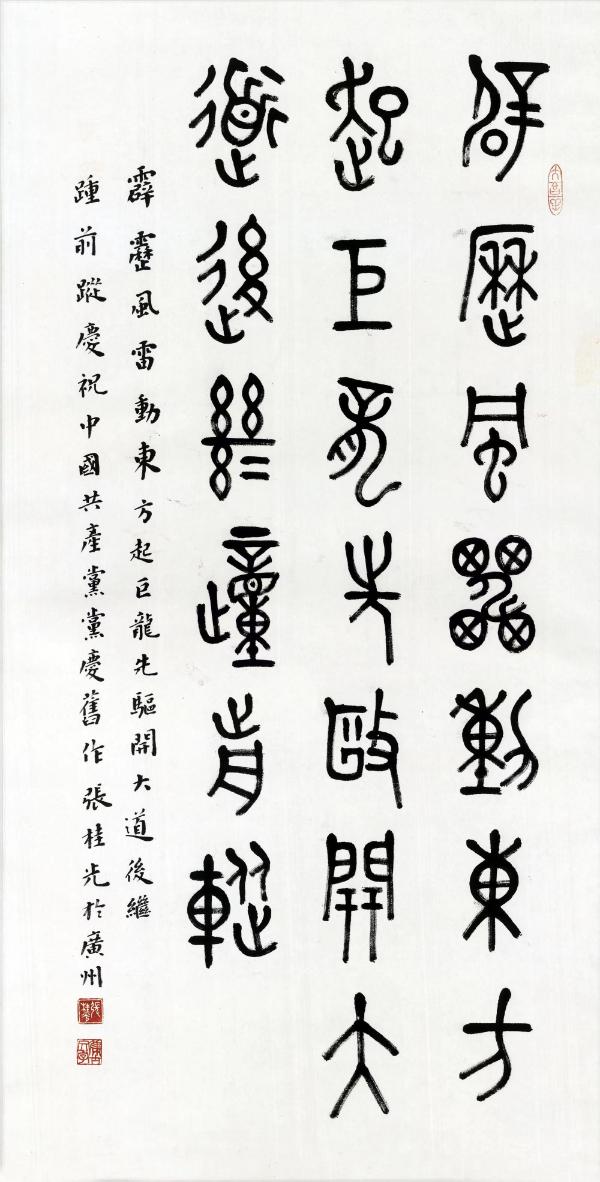 辟歷風雷動東方
起巨龍先敺開大
道後繼踵歬蹤
霹靂風雷動東方起巨龍先驅開大道後繼
踵前蹤慶祝中國共產黨黨慶舊作張桂光於廣州